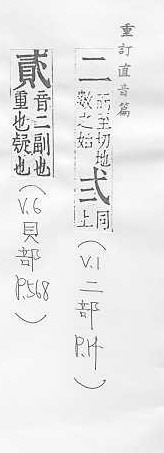 重訂直音篇
二 而至切地數之始 弍 同上 (V.1 二部 P.14)
貳 音二副也重也疑也 (V.6 貝部 P.568)